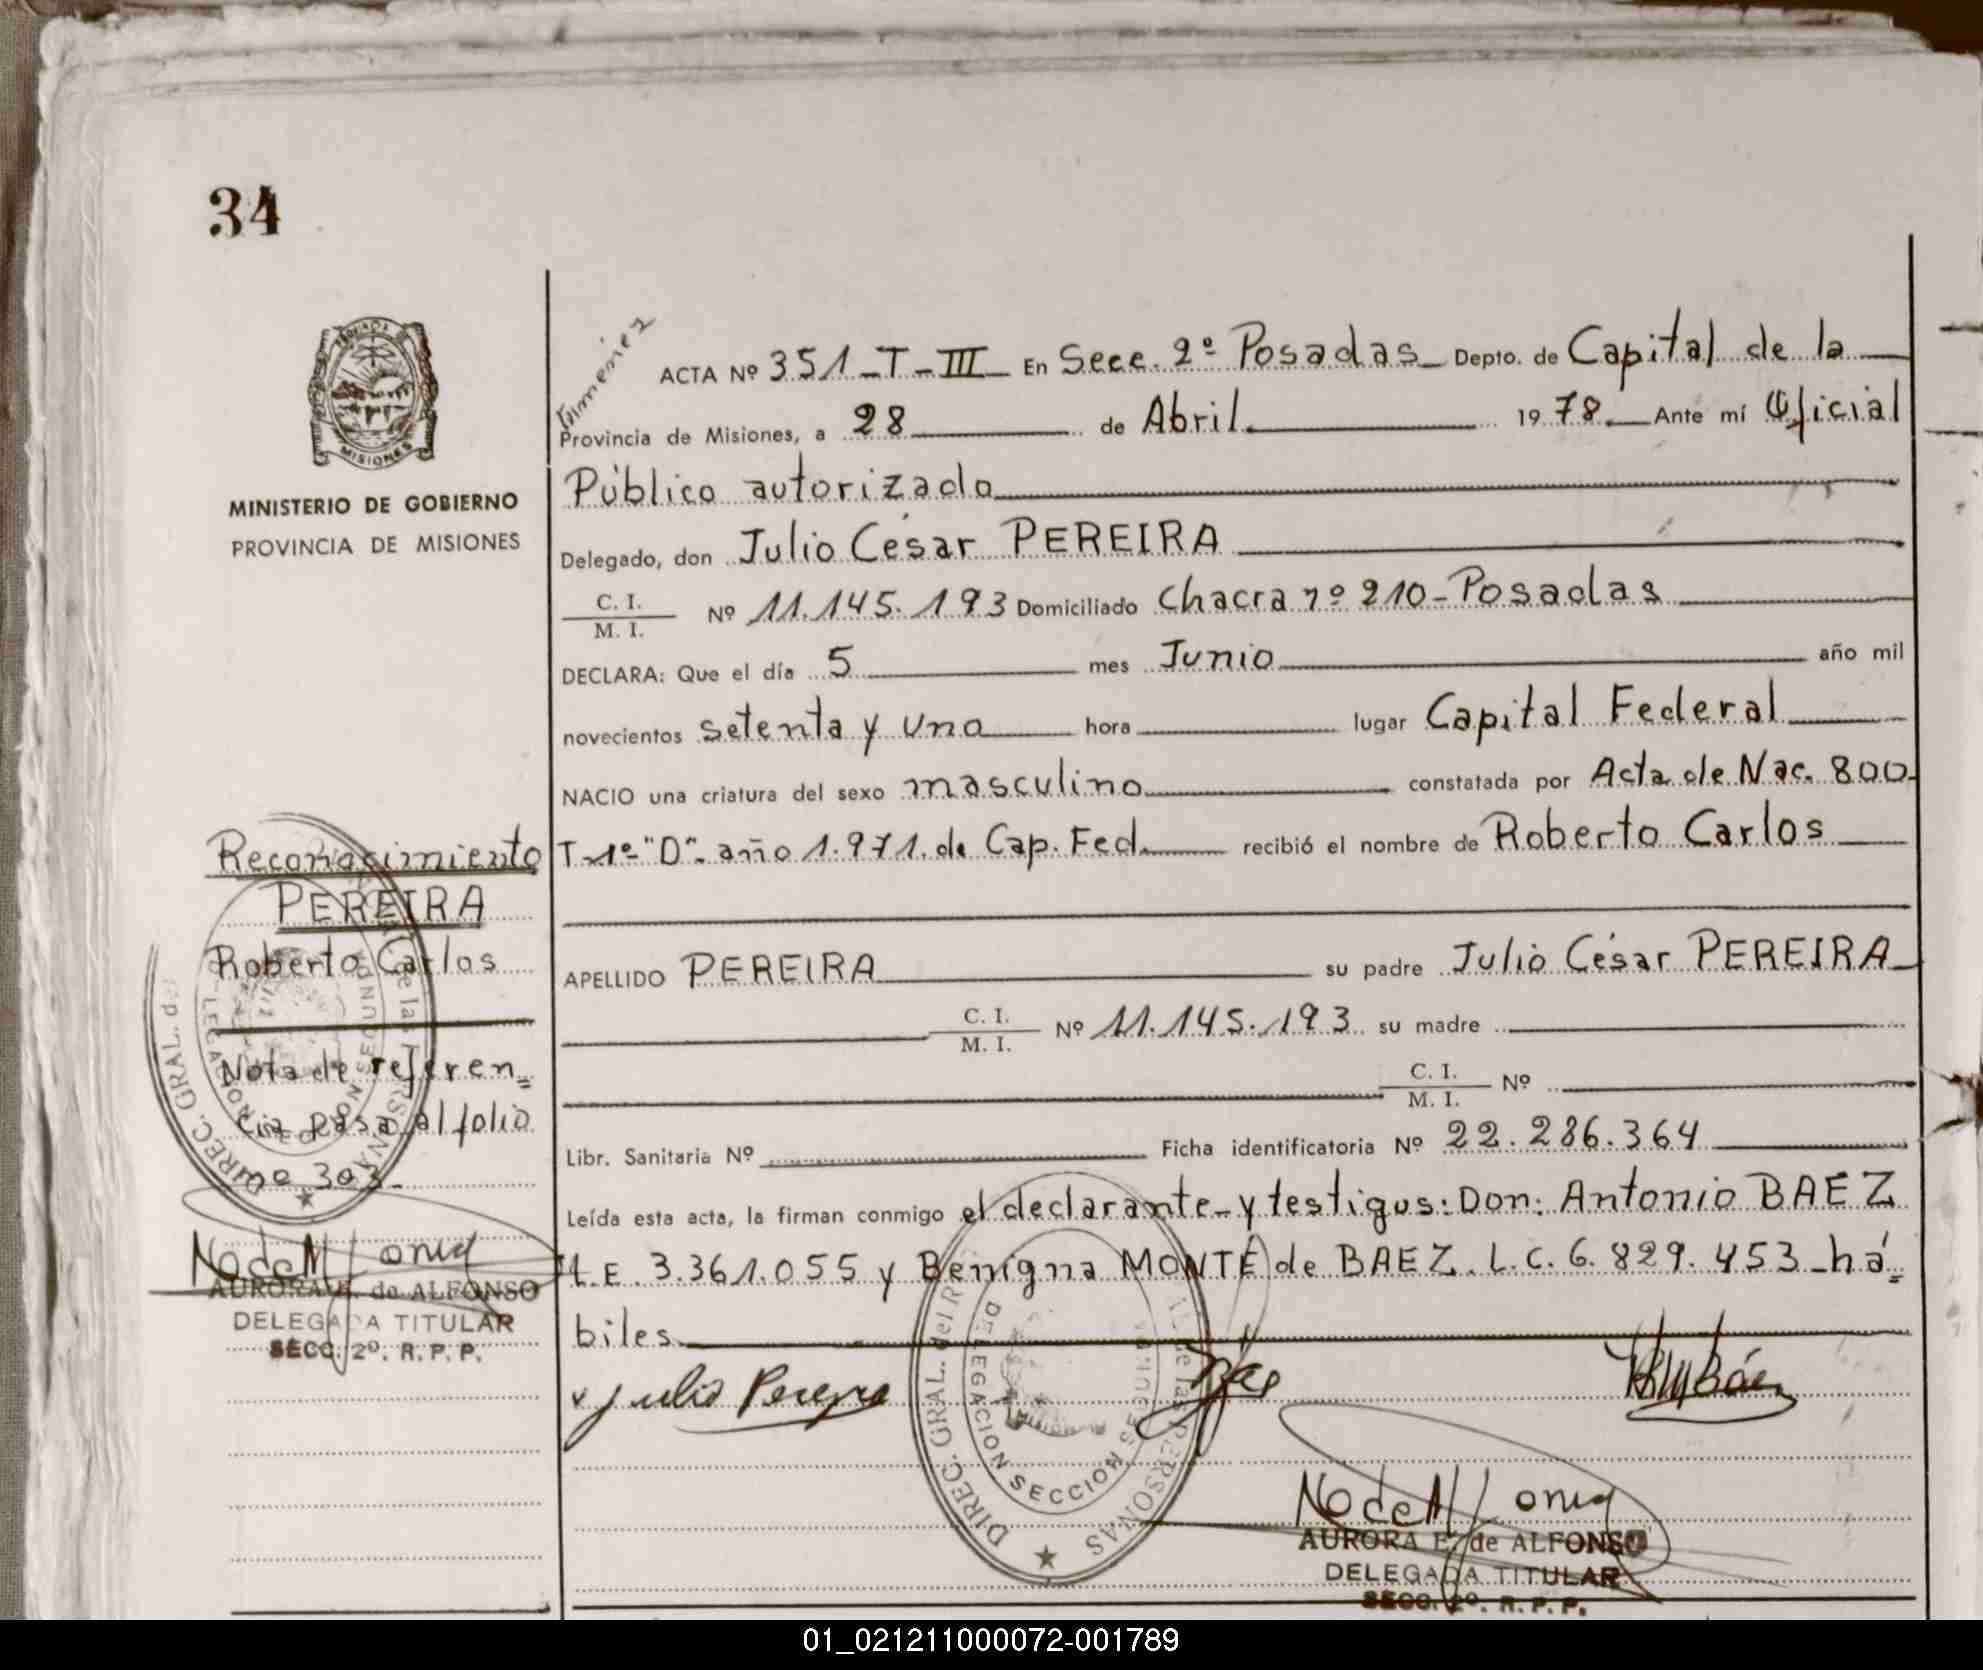 34
MISIONES
MINISTERIO DE GOBIERNO
PROVINCIA DE MISIONES
Reconocimiento
PEREIRA
Roberto Carlos
Nota de referen=
cia pasa al folio
nº 303.-
AURORA E. de ALFONSO
DELEGADA TITULAR
SECC. 2º. R. P. P.
ACTA Nº 351 - T - III En Secc. 2º Posadas Depto. de Capital de la
Provincia de Misiones, a 28 de Abril 1978 Ante mí Oficial
Público autorizado
Delegado, don Julio César PEREIRA
C. I.
M. I. Nº 11.145.193 Domiciliado Chacra nº 210 - Posadas
DECLARA: Que el día 5 mes Junio año mil
novecientos setenta y uno hora lugar Capital Federal
NACIO una criatura del sexo masculino constatada por Acta de Nac. 800
T-1º "D". año 1.971. de Cap. Fed. recibió el nombre de Roberto Carlos
APELLIDO PEREIRA su padre Julio César PEREIRA
C. I.
M. I. Nº 11.145.193 su madre
C. I.
M. I. Nº
Libr. Sanitaria Nº Ficha identificatoria Nº 22.286.364
Leída esta acta, la firman conmigo el declarante y testigos: Don: Antonio BAEZ
L.E. 3.361.055 y Benigna MONTÉ de BAEZ. L.C. 6.829.453 - há=
biles
Julio Pereyra
DIREC. GRAL. del R
DELEGACION SECCION
PERSONAS
AURORA E. de ALFONSO
DELEGADA TITULAR
SECC. 2º. R. P. P.
01_021211000072-001789